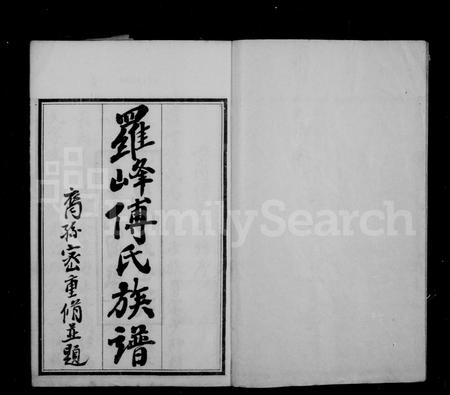 羅峰傅氏族譜
裔孫密重脩並題
FamilySearch